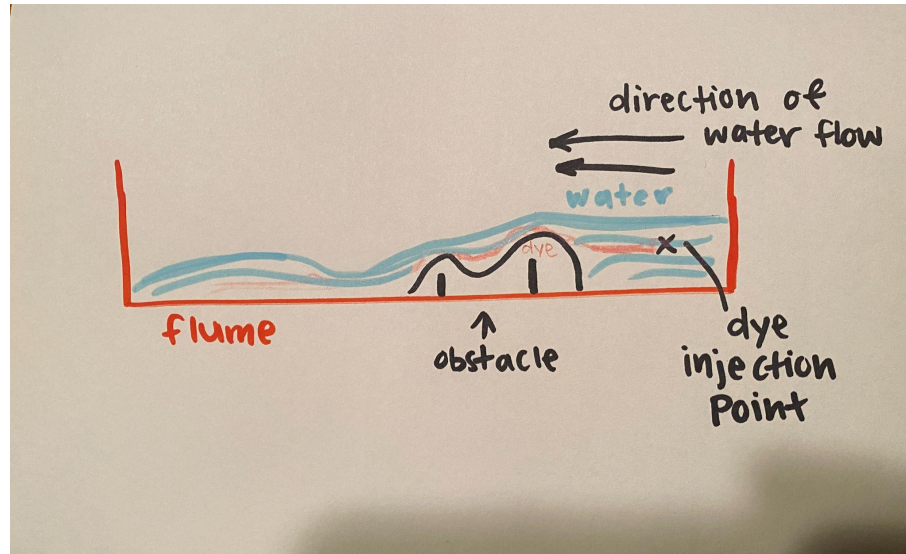 direction of
water flow
water
dye
flume
obstacle
dye
injection
Point